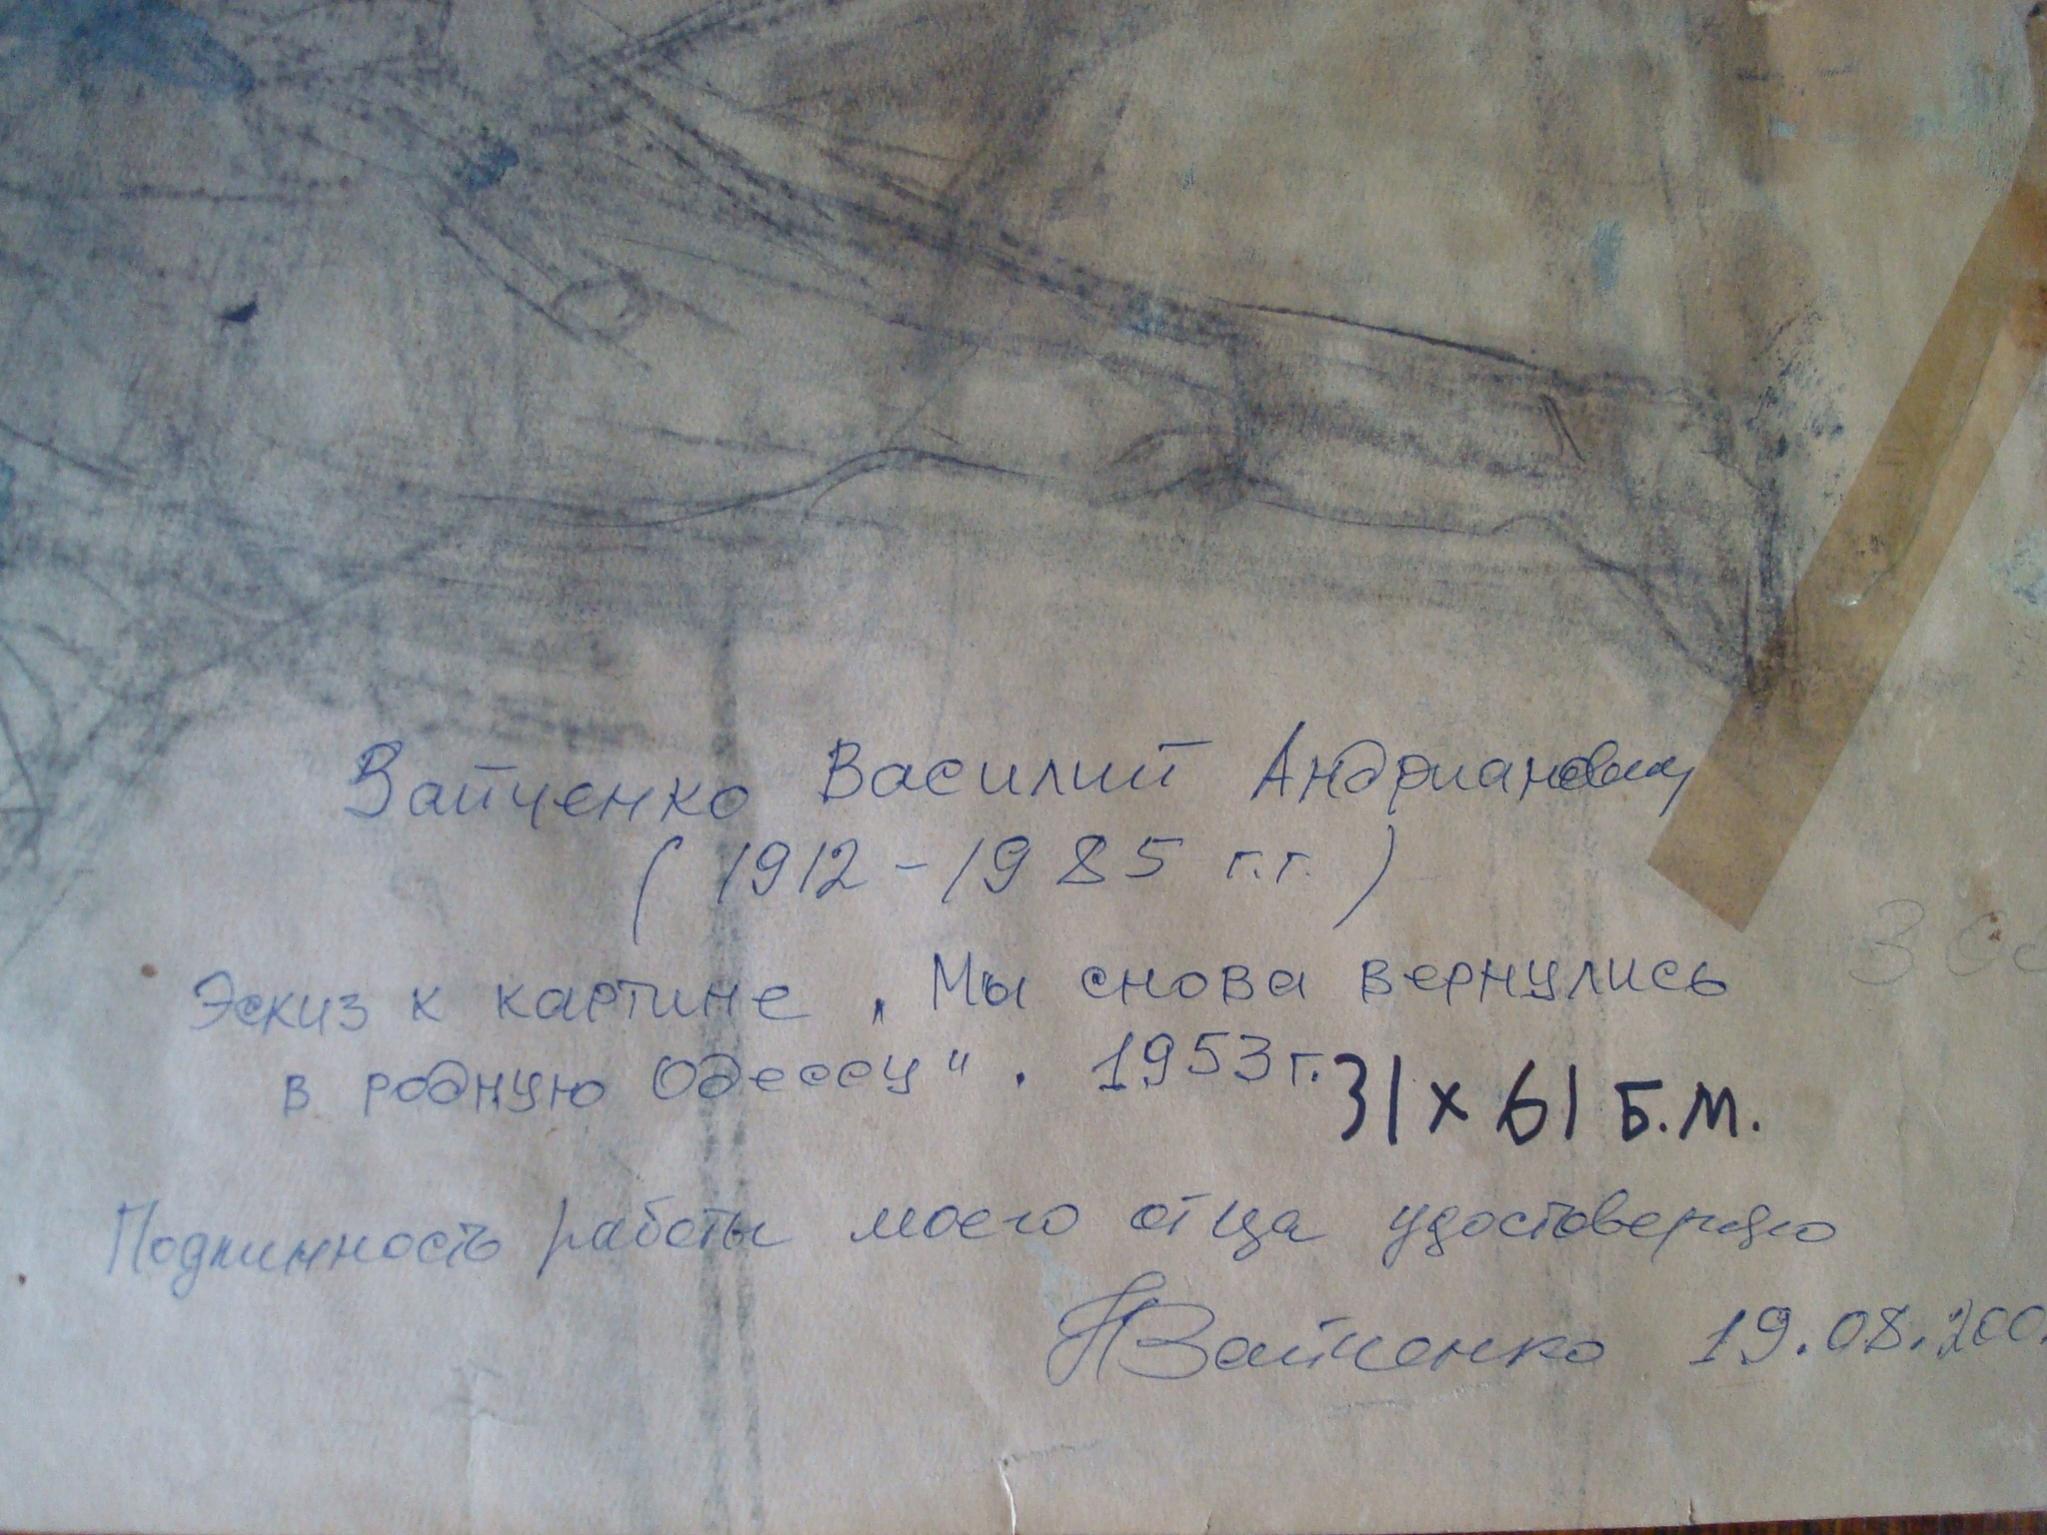 Зайченко Василий Андрианович
(1912-1985 г.г.)
Эскиз к картине „Мы снова вернулись
в родную Одессу". 1953г.
31 х 61 Б.М.
Подлинность работы моего отца удостоверяю
Зайченко 19.08.200